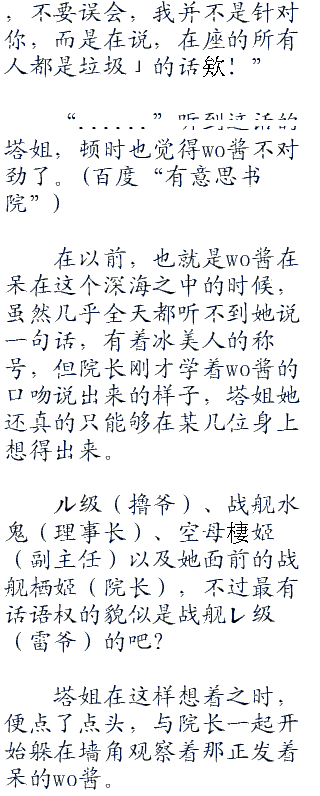 ，不要误会，我并不是针对
你，而是在说，在座的所有
人都是垃圾」的话欸！”
“......”听到这话的
塔姐，顿时也觉得wo酱不对
劲了。(百度“有意思书
院”)
在以前，也就是wo酱在
呆在这个深海之中的时候，
虽然几乎全天都听不到她说
一句话，有着冰美人的称
号，但院长刚才学着wo酱的
口吻说出来的样子，塔姐她
还真的只能够在某几位身上
想得出来。
ル级（撸爷）、战舰水
鬼（理事长）、空母棲姬
（副主任）以及她面前的战
舰栖姬（院长），不过最有
话语权的貌似是战舰レ级
（雷爷）的吧？
塔姐在这样想着之时，
便点了点头，与院长一起开
始躲在墙角观察着那正发着
呆的wo酱。